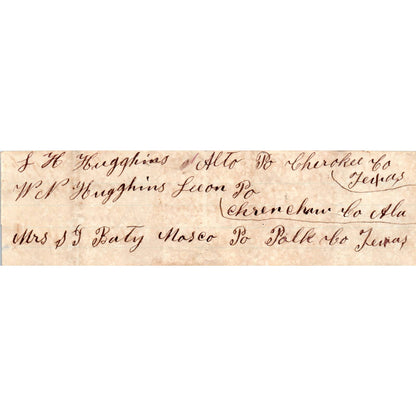 S H Hugghins Alto Po Cherokee Co
Texas
W N Hugghins Luon Po
Chrenchaw Co Ala
Mrs S J Baty Mosco Po Polk Co Texas